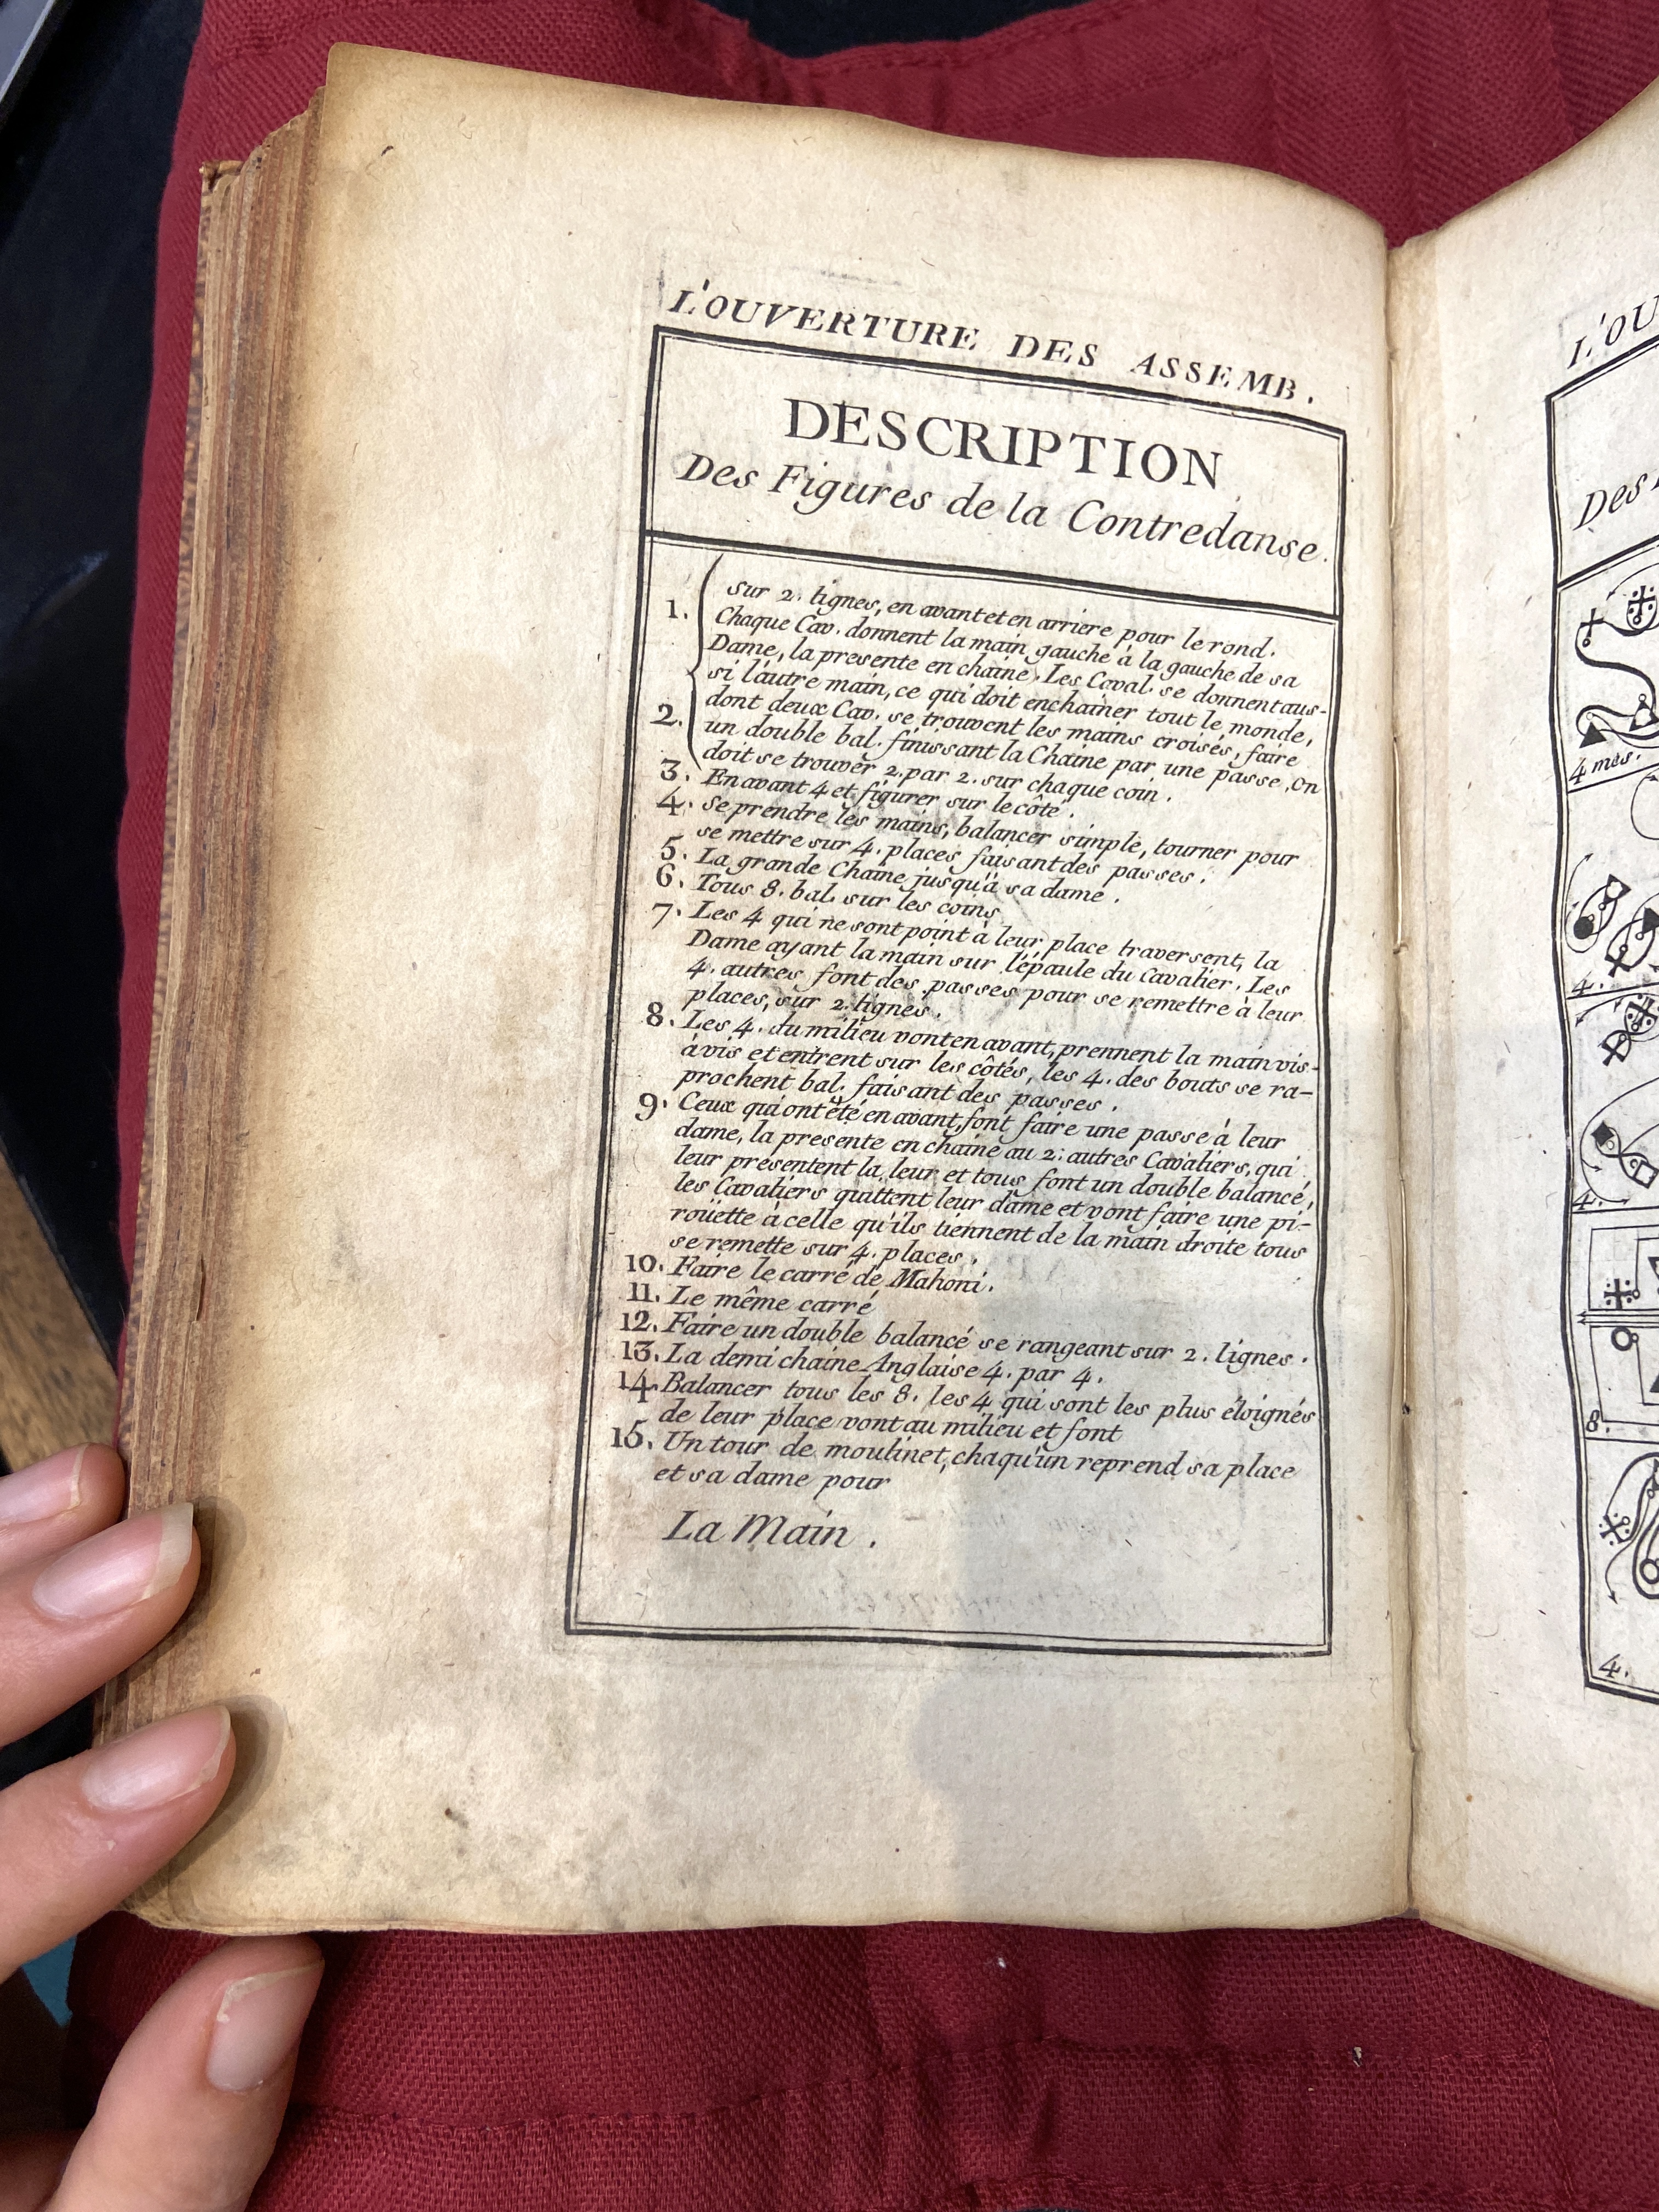 L'OUVERTURE DES ASSEMB.
DESCRIPTION
Des Figures de la Contredanse.
1. sur 2. lignes, en avant et en arriere pour le rond.
Chaque Cav. donnent la main gauche à la gauche de sa
Dame, la presente en chaine, Les Caval. se donnent aus-
si l'autre main, ce qui doit enchainer tout le monde,
2. dont deux Cav. se trouvent les mains croisés, faire
un double bal. finissant la Chaine par une passe, on
doit se trouver 2. par 2. sur chaque coin.
3. En avant 4 et figurer sur le côté.
4. Se prendre les mains, balancer simple, tourner pour
se mettre sur 4. places faisant des passes.
5. La grande Chaine jusqu'à sa dame.
6. Tous 8. bal. sur les coins
7. Les 4 qui ne sont point à leur place traversent, la
Dame ayant la main sur l'épaule du Cavalier. Les
4. autres font des passes pour se remettre à leur
places, sur 2. lignes.
8. Les 4. du milieu vont en avant, prennent la main vis-
à vis et entrent sur les côtés, les 4. des bouts se ra-
prochent bal. faisant des passes.
9. Ceux qui ont été en avant, font faire une passe à leur
dame, la presente en chaine au 2. autres Cavaliers, qui
leur présentent la leur et tous font un double balancé,
les Cavaliers quittent leur dame et vont faire une pi-
rouëtte à celle qu'ils tiennent de la main droite tous
se remette sur 4. places.
10. Faire le carré de Mahoni.
11. Le même carré
12. Faire un double balancé se rangeant sur 2. lignes.
13. La demi chaine Anglaise 4. par 4.
14. Balancer tous les 8. les 4 qui sont les plus éloignés
de leur place vont au milieu et font
15. Un tour de moulinet, chaqu'un reprend sa place
et sa dame pour
La Main.
L'OU
Des
4 mes.
4.
4.
8.
4.